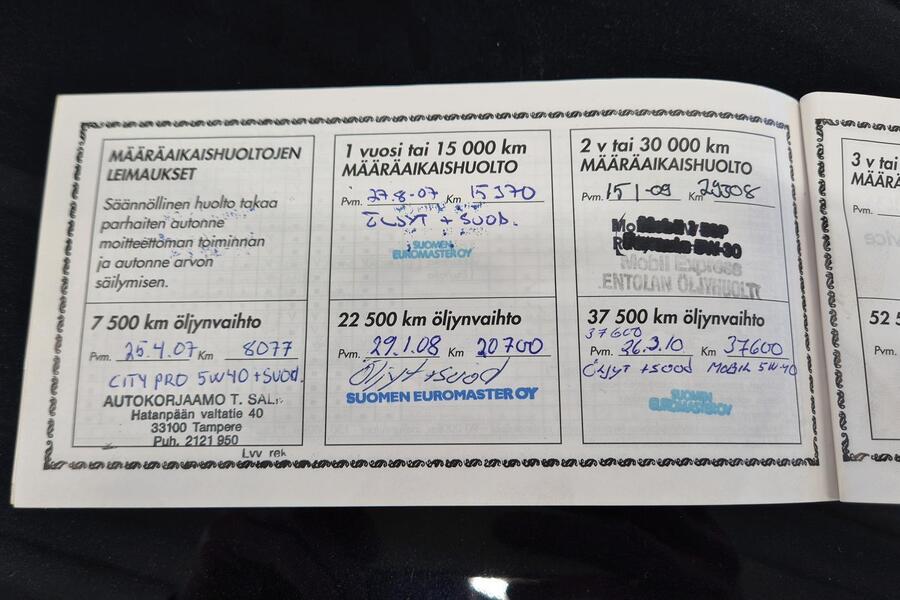 MÄÄRÄAIKAISHUOLTOJEN
LEIMAUKSET
Säännöllinen huolto takaa
parhaiten autonne
moitteettoman toiminnan
ja autonne arvon
säilymisen.
1 vuosi tai 15 000 km
MÄÄRÄAIKAISHUOLTO
Pvm. 27.8-07 Km 15370
ÖLJYT + SUOD.
SUOMEN
EUROMASTER OY
2 v tai 30 000 km
MÄÄRÄAIKAISHUOLTO
Pvm. 15 1-09 Km 29308
Mobil Express
ENTOLAN ÖLJYHUOLTO
3 v tai
MÄÄRÄ
Pvm.
7 500 km öljynvaihto
Pvm. 25.4.07 Km 8077
CITY PRO 5W40 + SUOD.
AUTOKORJAAMO T. SAL
Hatanpään valtatie 40
33100 Tampere
Puh. 2121 950
Lvv rek
22 500 km öljynvaihto
Pvm. 29.1.08 Km 20700
Öljyt + suod
SUOMEN EUROMASTER OY
37 500 km öljynvaihto
37600
Pvm. 26.3.10 Km 37600
ÖLJYT + SUOD MOBIL 5W40
SUOMEN
EUROMASTER OY
52 5
Pvm.